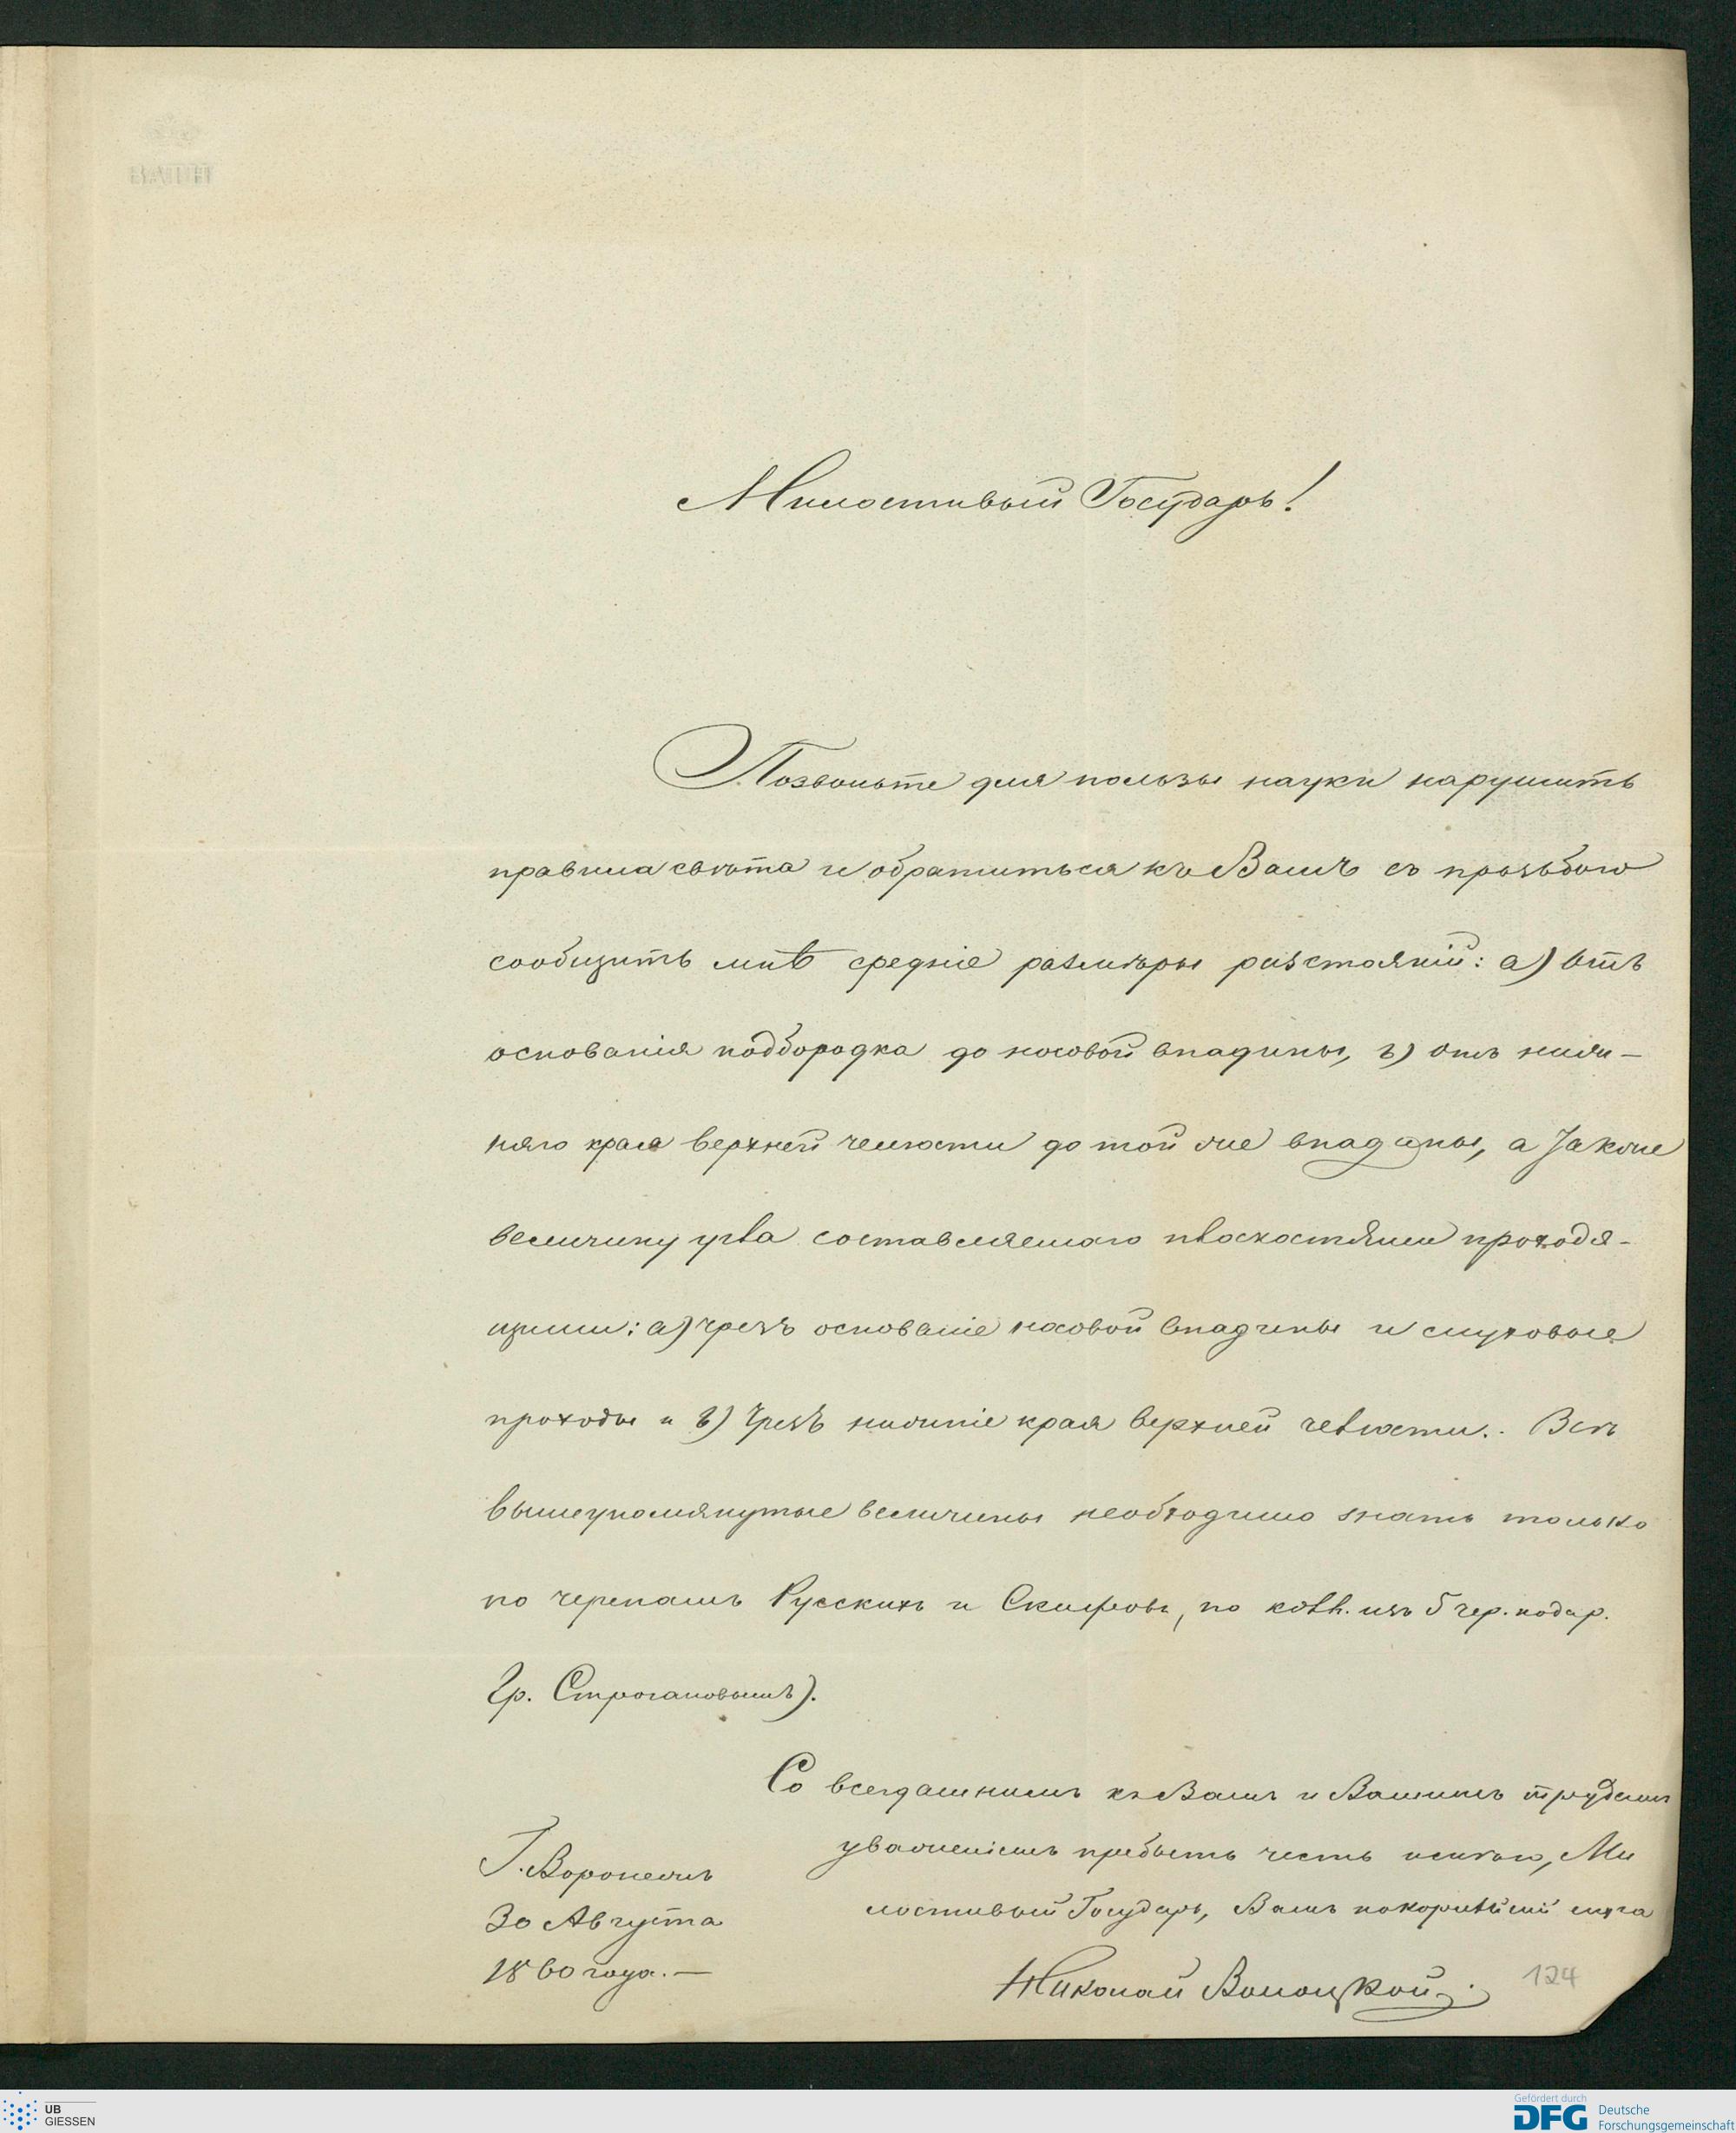 Милостивый Государь!
Позвольте для пользы науки нарушить
правила свѣта и обратиться къ Вамъ съ прозьбою
сообщить мнѣ средніе размѣры разстояній: а) отъ
основанія подбородка до носовой впадины, в) отъ ниж-
няго края верхней челюсти до той же впадины, а также
величину угла составляемаго плоскостями проходя-
щими: а) чрезъ основаніе носовой впадины и слуховые
проходы и в) чрезъ нижніе края верхней челюсти. Всѣ
вышеупомянутые величины необходимо знать только
по черепамъ Русскихъ и Скифовъ, по колл. изъ 5 чер. подар.
Гр. Строгановымъ).
Со всегдашнимъ къ Вамъ и Вашимъ трудамъ
уваженіемъ пребыть честь имѣю, Ми
лостивый Государь, Вашъ покорнѣйшій слуга
Николай Волоцкой.
Г. Воронежъ
30 Августа
1860 года.—
124
UB
GIESSEN
Gefördert durch
DFG Deutsche
Forschungsgemeinschaft